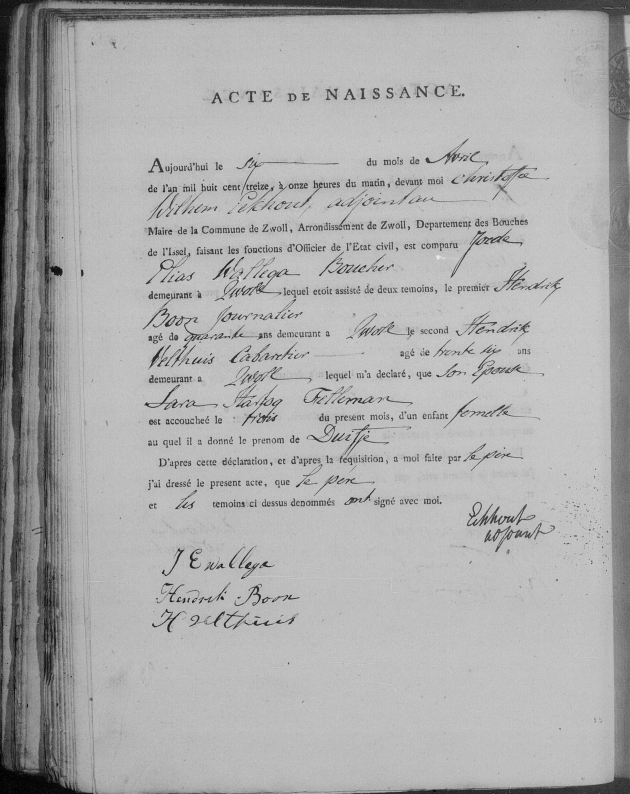 ACTE DE NAISSANCE.
Aujourd'hui le six du mois de Avril
de l'an mil huit cent treize, à onze heures du matin, devant moi Christoffe
Wilhem Eekhout, adjoint au
Maire de la Commune de Zwoll, Arrondissement de Zwoll, Departement des Bouches
de l'Issel, faisant les fonctions d'Officier de l'Etat civil, est comparu
Elias Wallega Boucher
demeurant a Zwoll lequel etoit assisté de deux temoins, le premier Hendrik
Boon Journalier
agé de quarante ans demeurant a Zwoll le second Hendrik
Velthuis Cabaretier agé de trente six ans
demeurant a Zwoll lequel m'a declaré, que son Epouse
Sara Hartog Felleman
est accouchée le trois du present mois, d'un enfant femelle
au quel il a donné le prenom de
D'apres cette déclaration, et d'apres la requisition, a moi faite par le père
j'ai dressé le present acte, que le père
et les temoins ci dessus denommés ont signé avec moi.
Eekhout
adjoint
J E Wallega
Hendrik Boon
H Velthuis